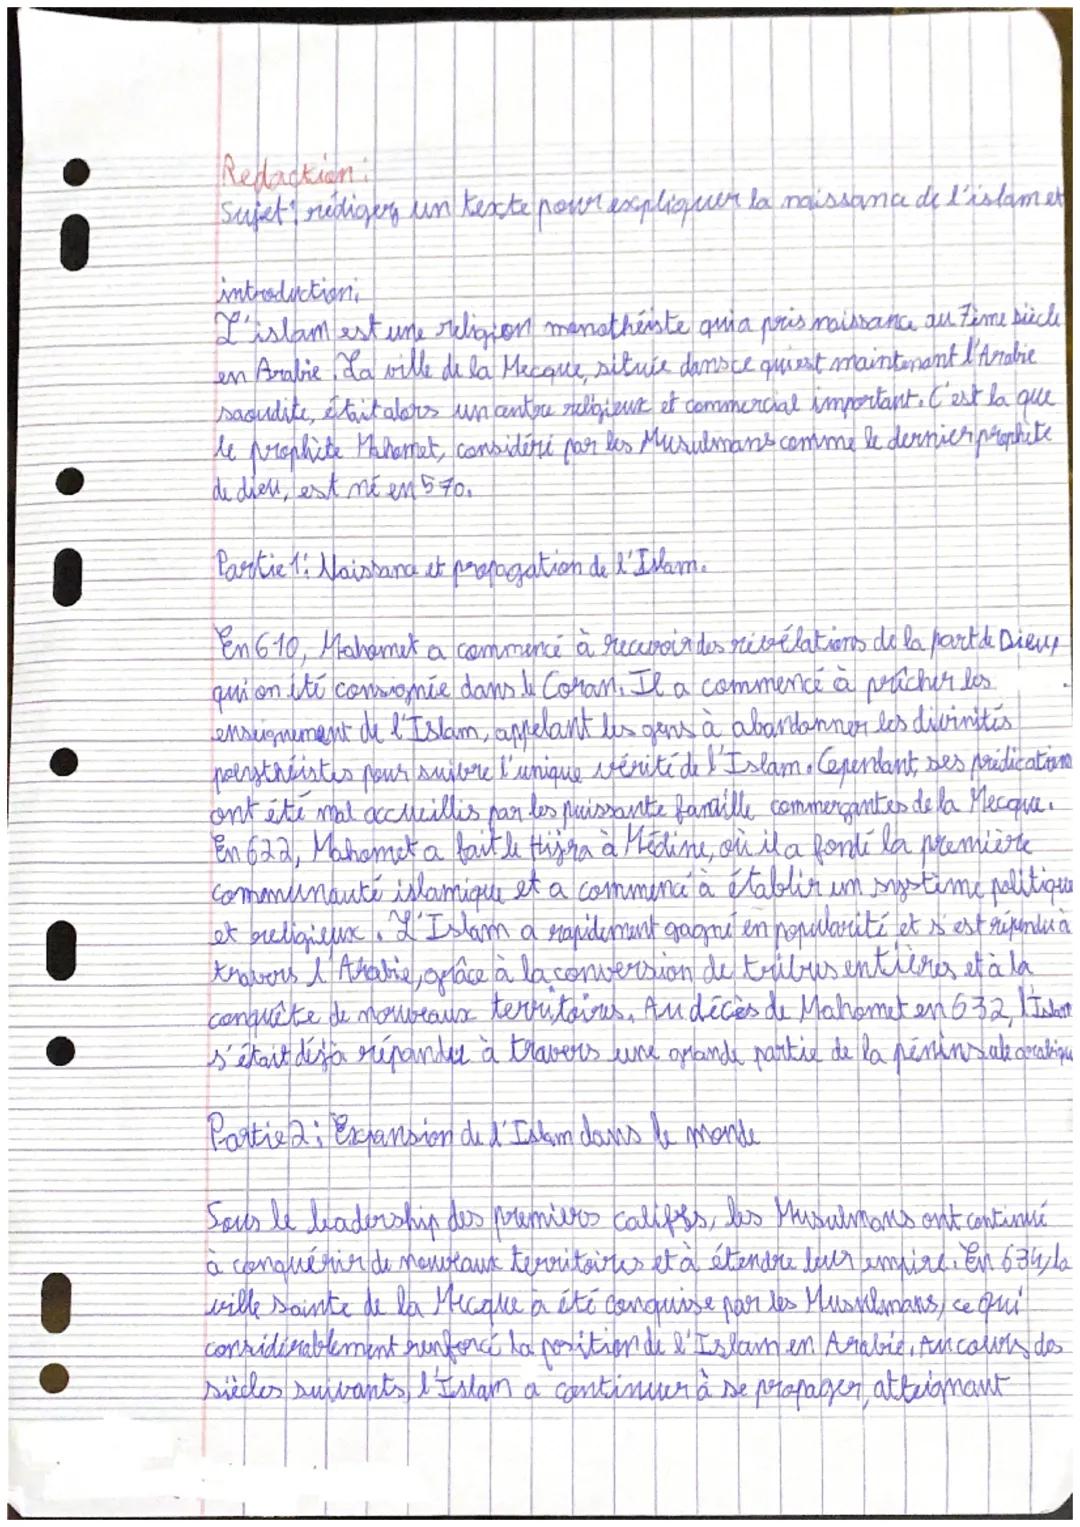 Redaction :
Sujet : rédiger un texte pour expliquer la naissance de l'islam et
introduction:
L'islam est une religion monothéiste qui a pris naissance au 7ème siècle
en Arabie. La ville de la Mecque, située dans ce qui est maintenant l'Arabie
saoudite, était alors un centre religieux et commercial important. C'est la que
le prophète Mahomet, considéré par les Musulmans comme le dernier prophète
de dieu, est né en 570.
Partie 1: Naissance et propagation de l'Islam.
En 610, Mahomet a commencé à recevoir des révélations de la part de Dieu,
qui on été consignée dans le Coran. Il a commencé à prêcher les
enseignement de l'Islam, appelant les gens à abandonner les divinités
polythéistes pour suivre l'unique vérité de l'Islam. Cependant, ses prédication
ont été mal accueillis par les puissante famille commerçantes de la Mecque.
En 622, Mahomet a fait le Hijra à Médine, où il a fondé la première
communauté islamique et a commencé à établir un système politique
et religieux. L'Islam a rapidement gagné en popularité et s'est répandu à
travers l'Arabie, grâce à la conversion de tribus entières et à la
conquête de nouveaux territoires. Au décès de Mahomet en 632, l'Islam
s'était déjà répandu à travers une grande partie de la péninsule arabique
Partie 2: Expansion de l'Islam dans le monde
Sous le leadership des premiers califes, les Musulmans ont continué
à conquérir de nouveaux territoires et à étendre leur empire. En 634, la
ville sainte de la Mecque a été conquise par les Musulmans, ce qui
considérablement renforcé la position de l'Islam en Arabie. Au cours des
siècles suivants, l'Islam a continuer à se propager, atteignant